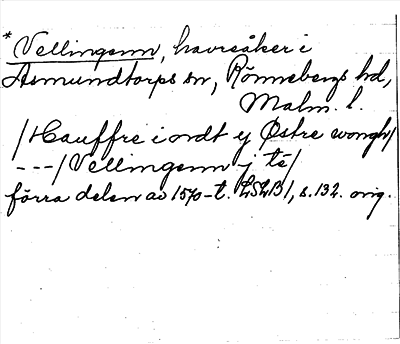 * Vellingsnn, havreåker i
Asmundtorps sn, Rönnebergs hd,
Malm. l.
/Hauffre iordt y Østre wongh/
---/Vellingsnn j tē/
förra delen av 1570-t. LSLB1, s.132. orig.